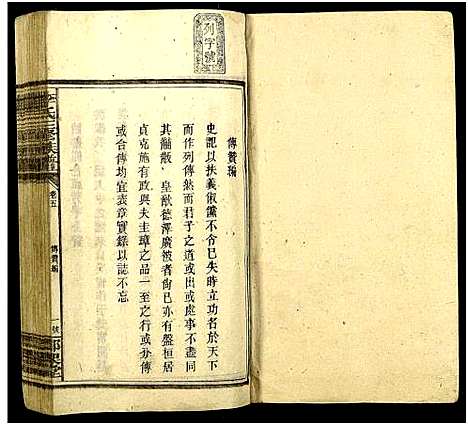 列字號
傳贊編
史記以扶義俶儻不令己失時立功名於天下
而作列傳然而君子之道或出或處事不盡同
其黼黻 皇猷德澤廣被者尚已亦有盤桓居
貞克施有政與夫圭璋之品一至之行或分傳
或合傳均宜表章實錄以誌不忘
卷五
傳贊編
一號